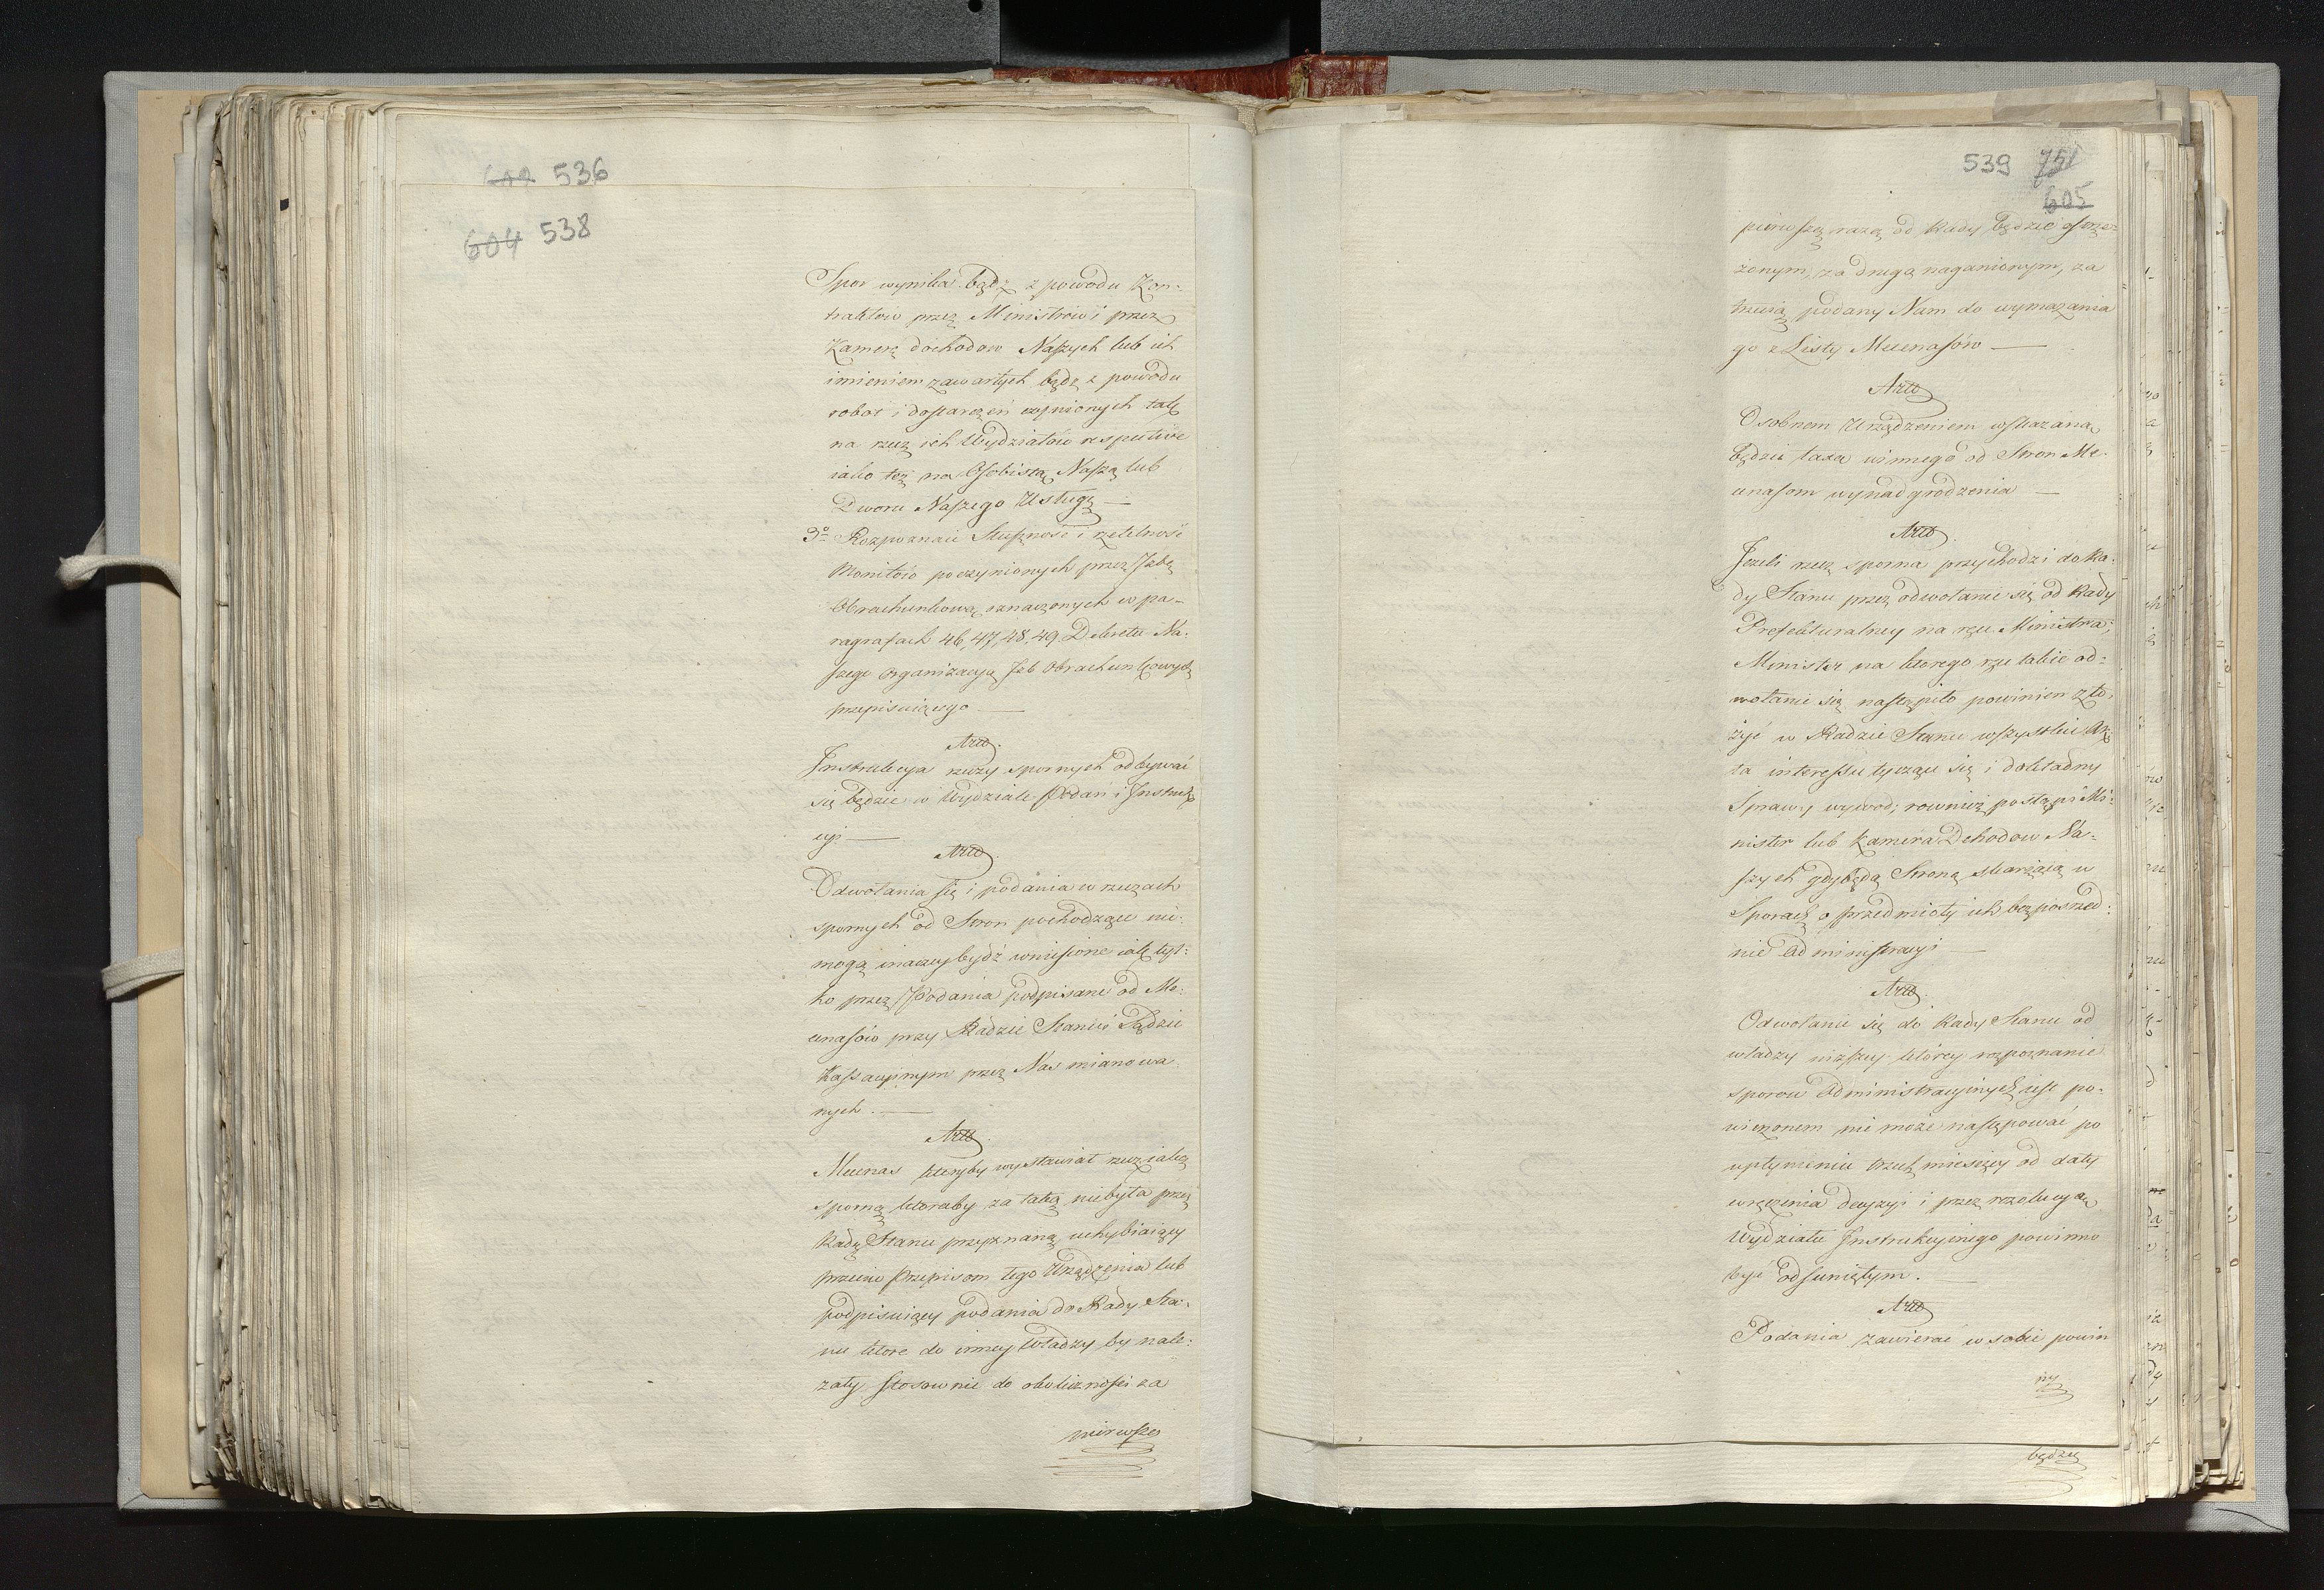 602 536
604 538
Spor wynika bądź z powodu Kon-
traktow przez Ministrow i przez
Kamerę dochodow Naszych lub ich
imieniem zawartych bądź z powodu
robot i dostarczeń czynionych tak
na rzecz ich Wydziałów respective
iako też na Osobistą Naszą lub
Dworu Naszego Usługę —
3o Rozpoznaie Słuszność i rzetelność
Monitów poczynionych przez Izbę
Obrachunkową oznaczonych w pa-
ragrafach 46, 47, 48, 49. Dekretu Na-
szego organizacyą Izb Obrachunkowych
przepisuiącego. —
Arto.
Instrukcya rzeczy spornych odbywać
się będzie w Wydziale Podań i Instruk-
cyi —
Arto.
Odwołania się i podania w rzeczach
spornych od Stron pochodzące nie-
mogą inaczey bydź wniesione iak tyl-
ko przez Podania podpisane od Me-
cenasów przy Radzie Stanu i Sądzie
Kassacyinym przez Nas mianowa-
nych. —
Arto.
Mecenas któryby wystawiał rzecz iako
sporną któraby za taką niebyła przez
Radę Stanu przyznaną uchybiaiący
przeciw Przepisom tego Urządzenia lub
podpisuiący podania do Rady Sta-
nu które do inney Władzy by nale-
żały stosownie do okoliczności za
pierwszą
539 751
605
pierwszą razą od Rady będzie ostrze-
żonym, za drugą naganionym, za
trzecią podany Nam do wymazania
go z Listy Mecenasów —
Arto
Osobnem Urządzeniem wskazaną
będzie taxa winnego od Stron Me-
cenasom wynadgrodzenia —
Arto.
Jeżeli rzecz sporna przychodzi do Ra-
dy Stanu przez odwołanie się od Rady
Prefekturalney na rzecz Ministra;
Minister na którego rzecz takie od-
wołanie się nastąpiło powinien zło-
żyć w Radzie Stanu wszystkie Ak-
ta interessu tyczące się i dokładny
Sprawy wywod; również postąpi Mi-
nister lub Kamera Dochodow Na-
szych gdy będą Stroną skarżącą w
Sporach o przedmioty ich bezpośred-
nie Administracyi —
Arto.
Odwołanie się do Rady Stanu od
władzy niższey którey rozpoznanie
sporow Administracyinych iest po-
wierzonem nie może następować po
upłynieniu trzech miesięcy od daty
wręczenia decyzyi i przez rezolucyą
Wydziału Instrukcyinego powinno
być odsuniętym. —
Arto
Podania zawierać w sobie powin
ny
będzie